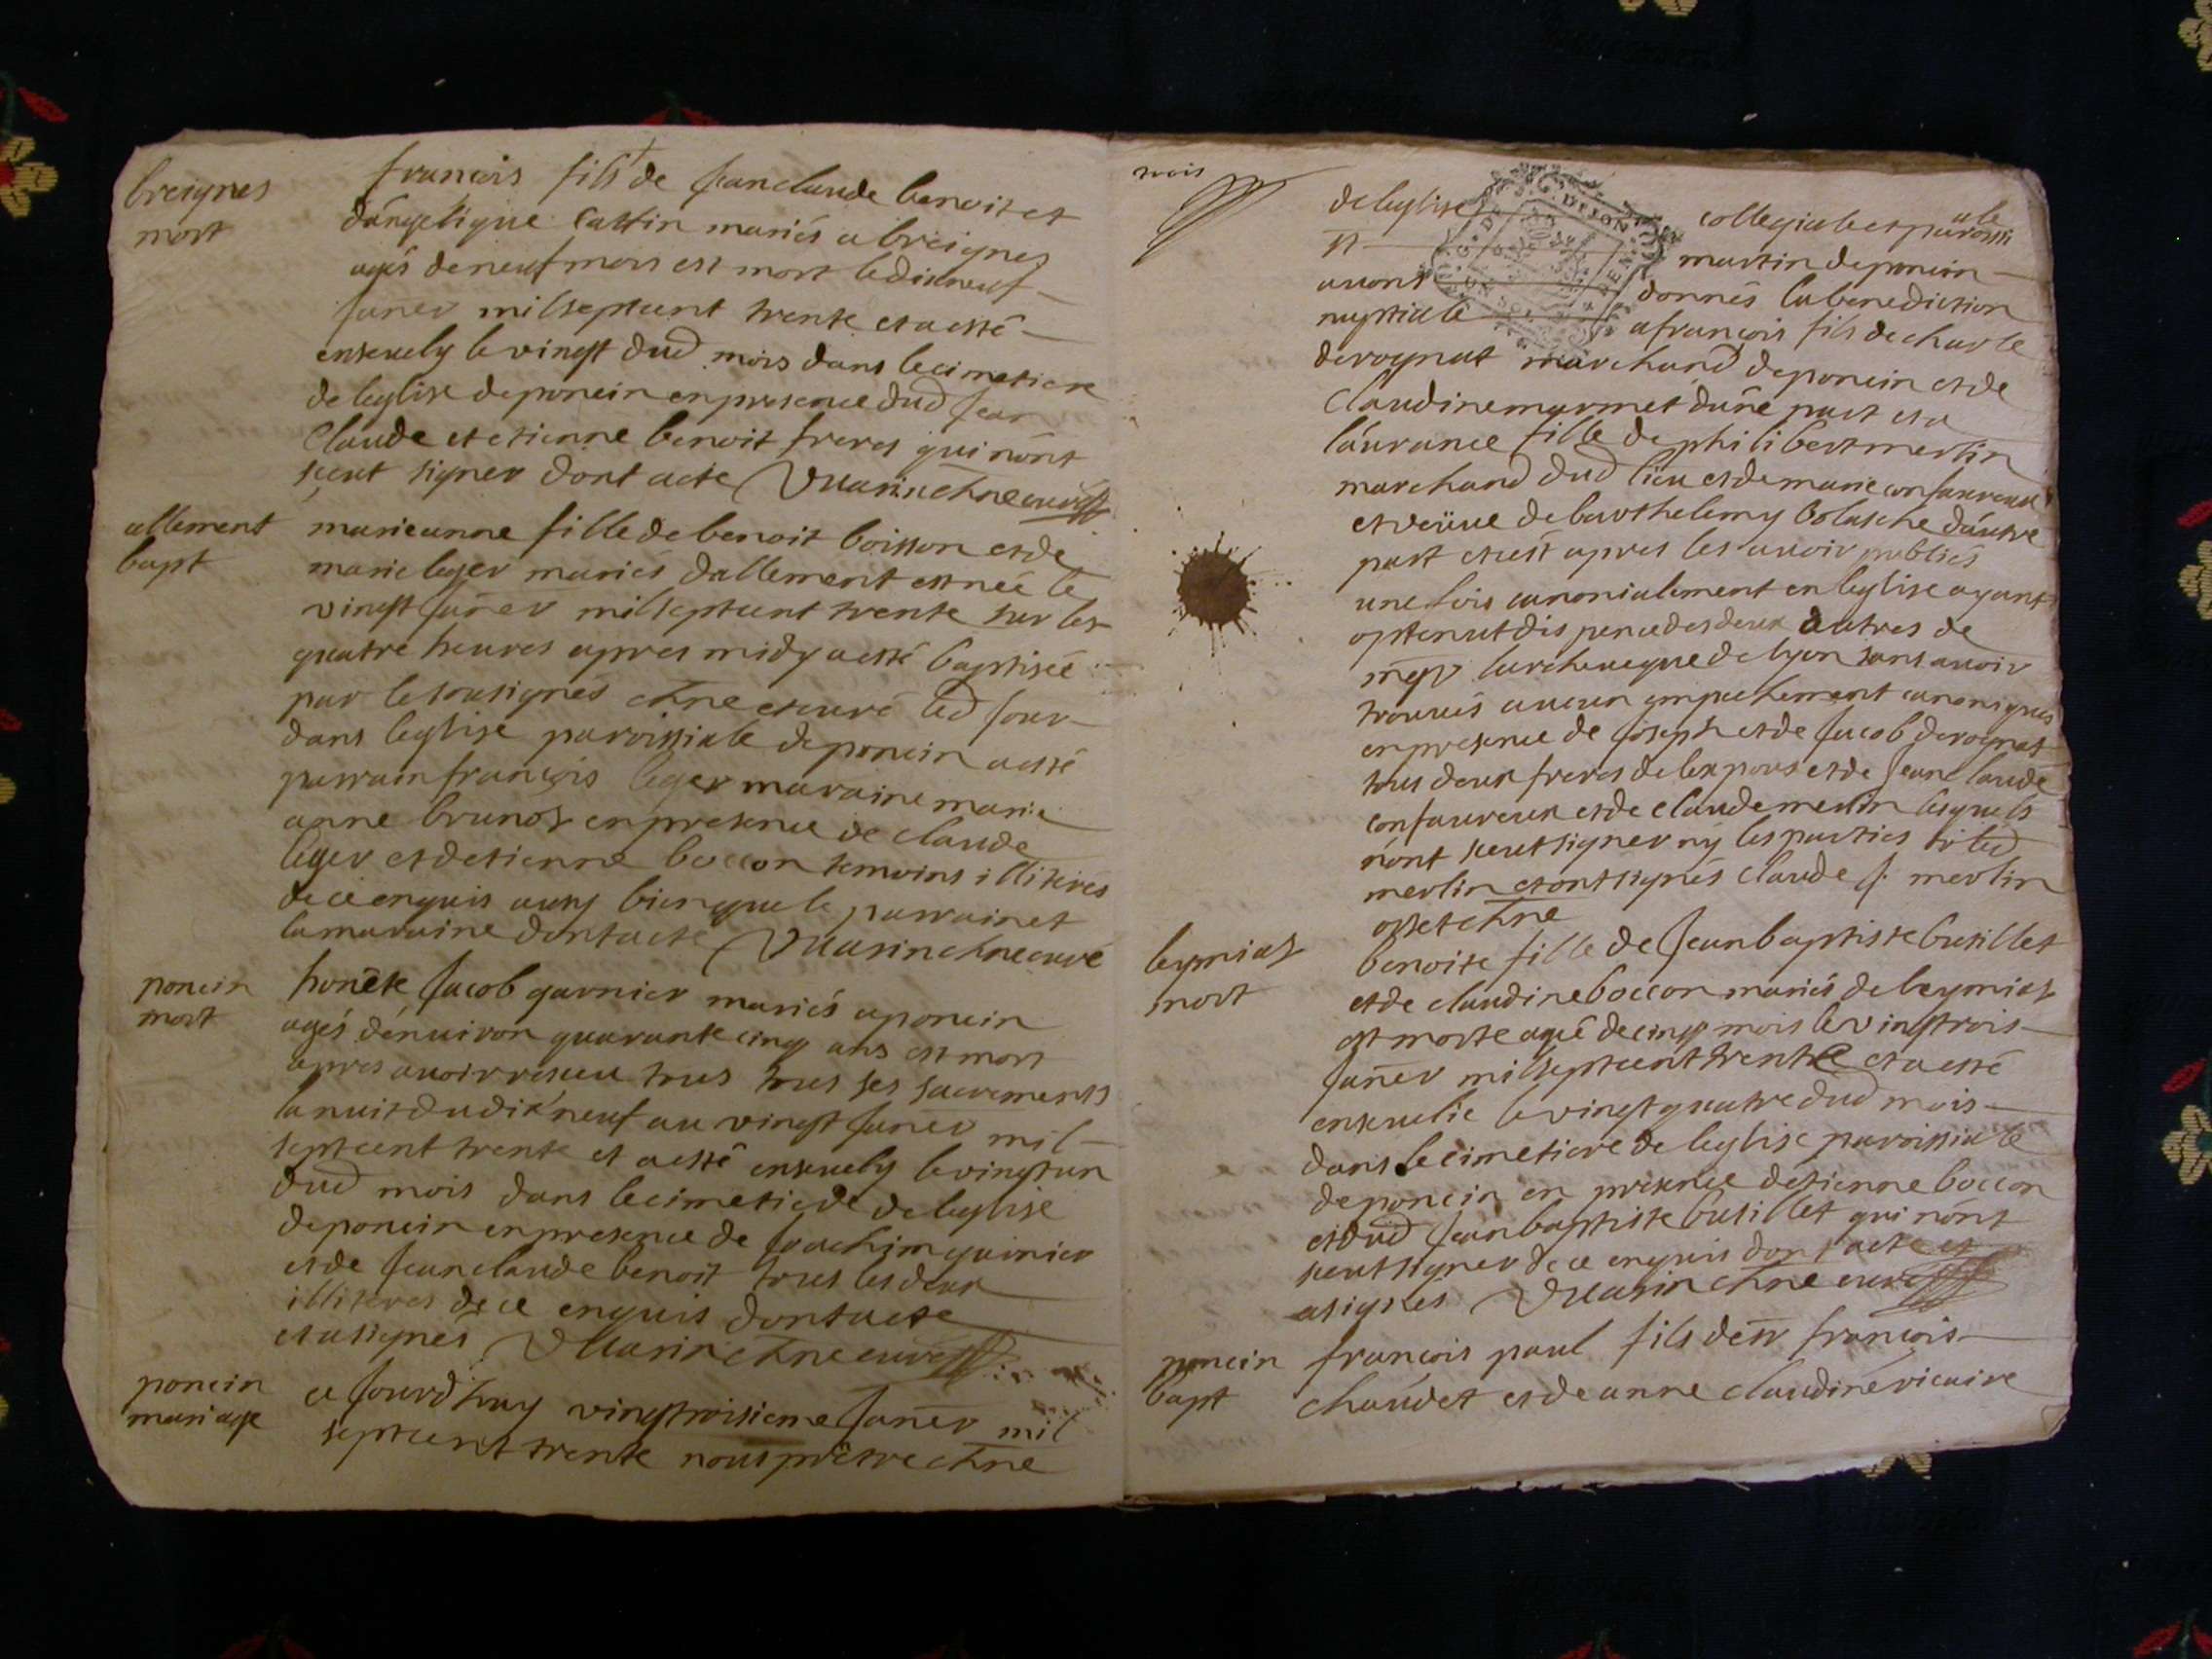 breignes
mort
francois fils de Jean claude benoit et
dángelique cattin mariés a breignes
agés de neuf mois est mort le dixneuf
Janer mil sept cent trente et a esté
enseuely le vingt dud mois dans le cimetiere
de leglise de poncin en presence dud Jean
Claude et etienne benoit freres qui nónt
sceut signer dont acte DMarin chne curé
allement
bapt
marieanne fille de benoit boisson et de
marie leger mariés dallement est née le
vingt Janer mil sept cent trente sur les
quatre heures apres midy a esté baptisée
par le sousignés chne et curé led jour
dans leglise paroissiale de poncin a esté
parrain françois leger maraine marie
anne brunot en presence de claude
leger et detienne boccon temoins illiterés
de ce enquis aussy bien que le parrain et
la maraine dont acte DMarin chne curé
poncin
mort
honéte Jacob garnier mariés a poncin
agés dénuiron quarante cinq ans est mort
apres auoir resceu tous tous ses sacrements
la nuit du dix neuf au vingt Janer mil
sept cent trente et a esté enseuely le vingt un
dud mois dans le cimetiere de leglise
de poncin en presence de Joachim guinier
et de Jean claude benoit tous les deux
illiteres de ce enquis dont acte
et a signés DMarin chne curé
poncin
mariage
ce Jourdhuy vingt troisieme Janer mil
sept cent trente nous prêtre chne
trois
de leglise collegiale et paroissiale
st martin de poncin
auons donnés la benediction
nuptiale a françois fils de charle
derognat marchand de poncin et de
Claudine marmet dúne part et a
láurance fille de philibert merlin
marchand dud lieu et de marie confaureux
et veüue de barthelemy bolasche dáutre
part et cest apres les auoir publiés
une fois canonialement en leglise ayant
optenut dispence des deux autres de
mgr larcheueque de lyon sans auoir
trouués aucun empechement canoniques
en presence de Joseph et de Jacob derognat
tous deux freres de lexpoux et de Jean claude
confaureux et de claude merlin lesquels
nónt sceut signer ny les parties si led
merlin et ont signés Claude f. merlin
osset chne
leymiat
mort
benoite fille de Jean baptiste busillet
et de claudine boccon mariés de leymiat
est morte agé de cinq mois le vingt trois
Janer mil sept cent trente et a esté
enseuelie le vingt quatre dud mois
dans le cimetiere de leglise paroissiale
de poncin en presence détienne boccon
et dud Jean baptiste busillet qui nónt
sceut signer de ce enquis dont acte et
a signés DMarin chne curé
poncin
bapt
francois paul fils de sr francois
chaudet et de anne claudine vicaire